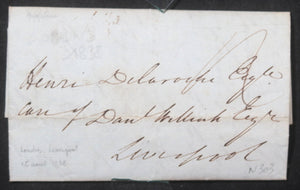 1838
Henri Delaroche Esqre
care of Danl Willink Esqre
Liverpool
London Liverpool
N 303